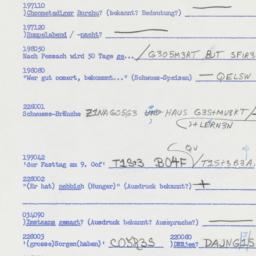 197110
)Chometzdiger Borchu? (bekannt? Bedeutung?)
197120
)Rumpelabend / -nacht?
198050
Nach Pessach wird 30 Tage ge... / G3O5M3AT BUT SFIR3
198080
"Wer gut oomert, bekommt..." (Schwuess-Speisen) — QELSW
228001
Schwuess-Bräuche Z1NAGOSG3 UND HAUS G35tMUKT /
2+LERN3N
199042
'Der Fasttag am 9. Oof' T1S13 BO4F / T1S13B3A
228002
"(Er hat) nebbich (Hunger)" (Ausdruck bekannt?) +
034090
)Insteans gemacht? (Ausdruck bekannt? Aussprache?)
228003
'(grosse)Sorgen(haben)' CO5R3S
220080
DAJNG15